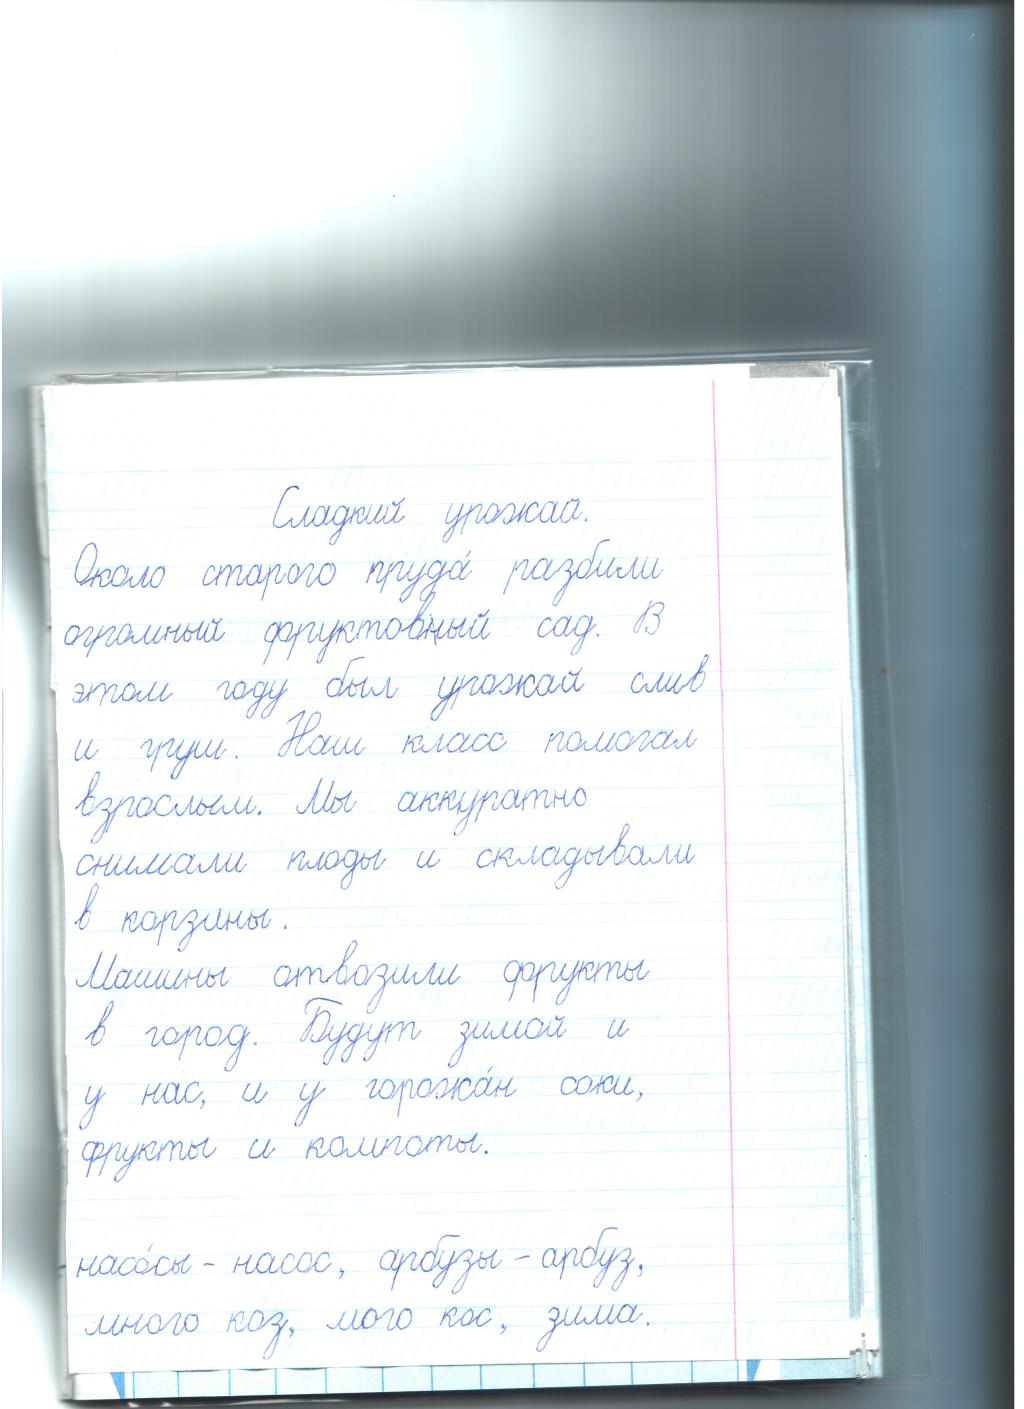 Сладкий урожай.
Около старого пруда́ разбили
огромный фруктовный сад. В
этом году был урожай слив
и груш. Наш класс помогал
взрослым. Мы аккуратно
снимали плоды и складывали
в корзины.
Машины отвозили фрукты
в город. Будут зимой и
у нас, и у горожа́н соки,
фрукты и компоты.
насо́сы - насос, арбузы - арбуз,
много коз, мого кос, зима.